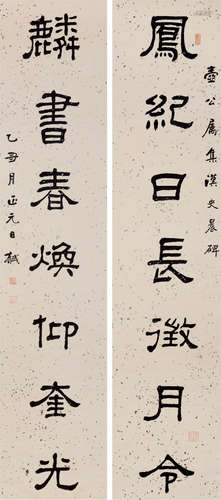 壺公屬集漢史晨碑
鳳紀日長徵月令
麟書春煥仰奎光
乙丑月正元日